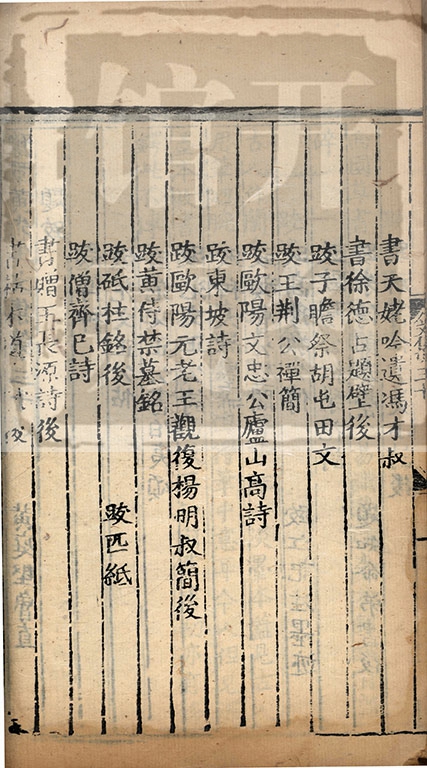 書天姥吟遺馮才叔
書徐德占題壁後
跋子瞻祭胡屯田文
跋王荆公禪簡
跋歐陽文忠公廬山高詩
跋東坡詩
跋歐陽元老王觀復楊明叔簡後
跋黄侍禁墓銘
跋砥柱銘後　跋匹紙
跋僧齊已詩
書贈王長源詩後